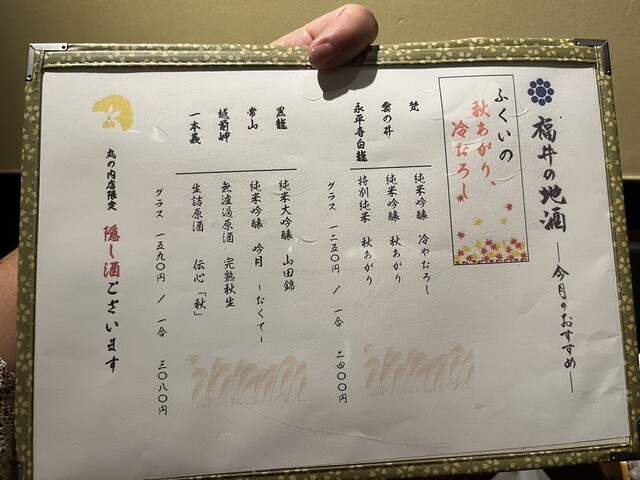 福井の地酒 ―今月のおすすめ―
ふくいの
秋あがり、
冷おろし
梵 純米吟醸 冷やおろし
雲の井 純米吟醸 秋あがり
永平寺白龍 特別純米 秋あがり
グラス 一二五〇円 / 一合 二四〇〇円
黒龍 純米大吟醸 山田錦
常山 純米吟醸 吟月 ーたくてー
越前岬 無濾過原酒 完熟秋生
一本義 生詰原酒 伝心「秋」
グラス 一五九〇円 / 一合 三〇八〇円
丸の内店限定 隠し酒ございます